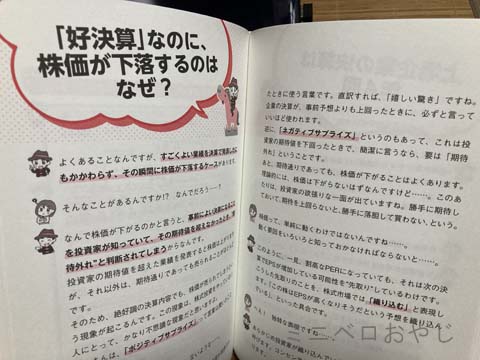 「好決算」なのに、
株価が下落するのは
なぜ？
よくあることなんですが、すごくよい業績を決算で発表したに
もかかわらず、その瞬間に株価が下落するケースが
そんなことがあるんですか!? なんでだろう…？
なんで株価が下がるのかと言うと、事前によい決算になること
を投資家が知っていて、その期待値を超えなかったとき、
待外れ”と判断されてしまうからなんです。
投資家の期待値を超えた業績を発表すると株価は上がります
が、それ以外は、期待通りであっても売られることが
そのため、絶好調の決算内容でも、株価が売られてしまう
う現象が起こるんです。この現象は、株式投資を
人にとって、かなり不思議な現象だと思います。
「ポジティブサプライズ」
たときに使う言葉です。直訳すれば、「嬉しい驚き」ですね。
企業の決算が、事前予想よりも上回ったときに、必ずと言って
いいほど使われます。
逆に、「ネガティブサプライズ」というのもあって、これは投
資家の期待値を下回ったときで、簡潔に言うなら、要は「期待
外れ」ということです。
あと、期待通りであっても、株価が下がることはよくあります。
理論的には、株価は下がらないはずなんですけど……。このあ
たりは、投資家の欲張りな一面が出ていますね。勝手に期待し
ておいて、期待を上回らないと、勝手に落胆して買わない、という。
株価って、単純に動くわけではないんですね……。
動く要因をいろいろと知っておかなければならないなと……。
このように、一見、割高なPERになっていても、それは次の決
算でEPSが増加している可能性を“先取り”しているわけです。
こうした先取りのことを、株式市場では、「織り込む」と表現し
「この株はEPSが高くなりそうだという予想を織り込んで
ている」といった具合です。
へぇ！ 独特な表現ですね…。
ーニベロおやじ